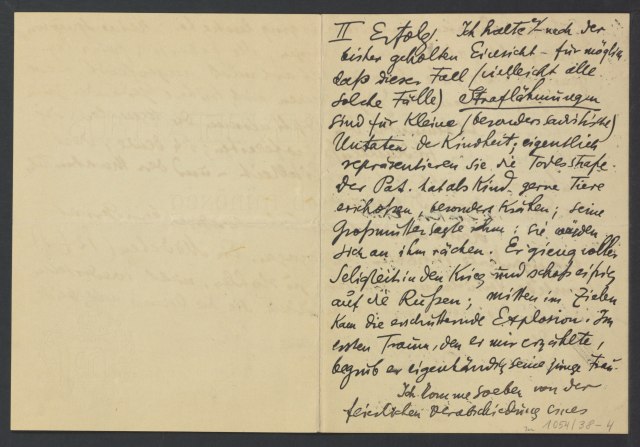 II Erfolg. Ich halte es nach der
bisher geholten Einsicht – für möglich
daß dieser Fall (vielleicht alle
solche Fälle) Straflähmungen
sind für kleine (besonders sadistische)
Untaten der Kindheit; eigentlich
repräsentieren sie die Todesstrafe.
Der Pat. hat als Kind gerne Tiere
erschossen, besonders Krähen; seine
Großmutter sagte ihm: sie würden
sich an ihm rächen. Er gieng voller
Seligkeit in den Krieg und schoß eifrig
auf die Rußen; mitten im Zielen
kam die erschütternde Explosion. Im
ersten Traum, den er mir erzählte,
begrub er eigenhändig seine junge Frau.
Ich komme soeben von der
feierlichen Verabschiedung eines
1054/38-4